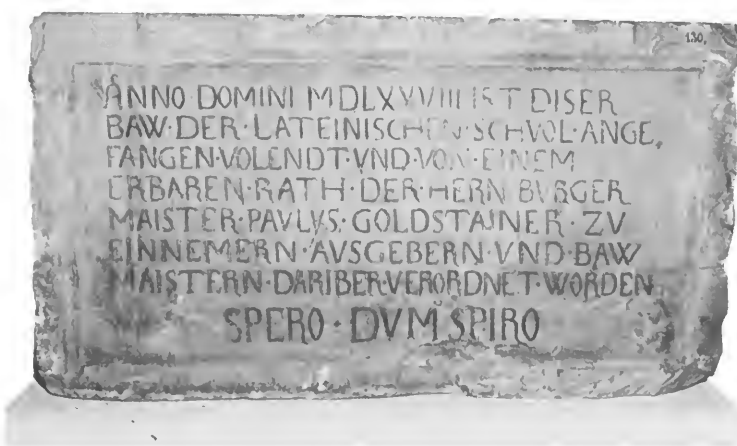 130.
ANNO·DOMINI MDLXXVIIII IST DISER
BAW·DER·LATEINISCHEN·SCHVOL·ANGE,
FANGEN·VOLENDT·VND·VON·EINEM
ERBAREN·RATH·DER·HERN BVRGER
MAISTER·PAVLVS·GOLDSTAINER·ZV
EINNEMERN·AVSGEBERN·VND·BAW
MAISTERN·DARIBER·VERORDNET·WORDEN
SPERO·DVM SPIRO